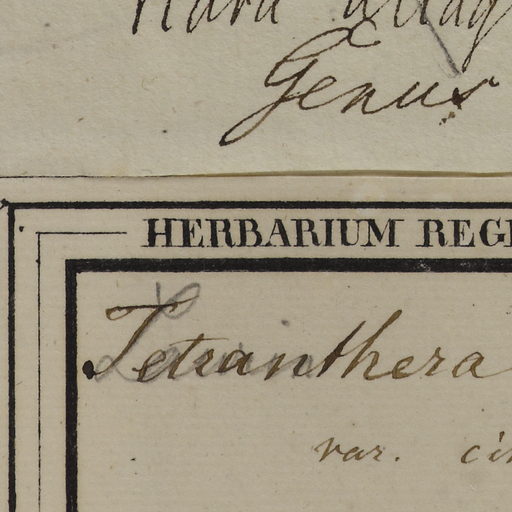 Genus
HERBARIUM REGI
Tetranthera
var. ci